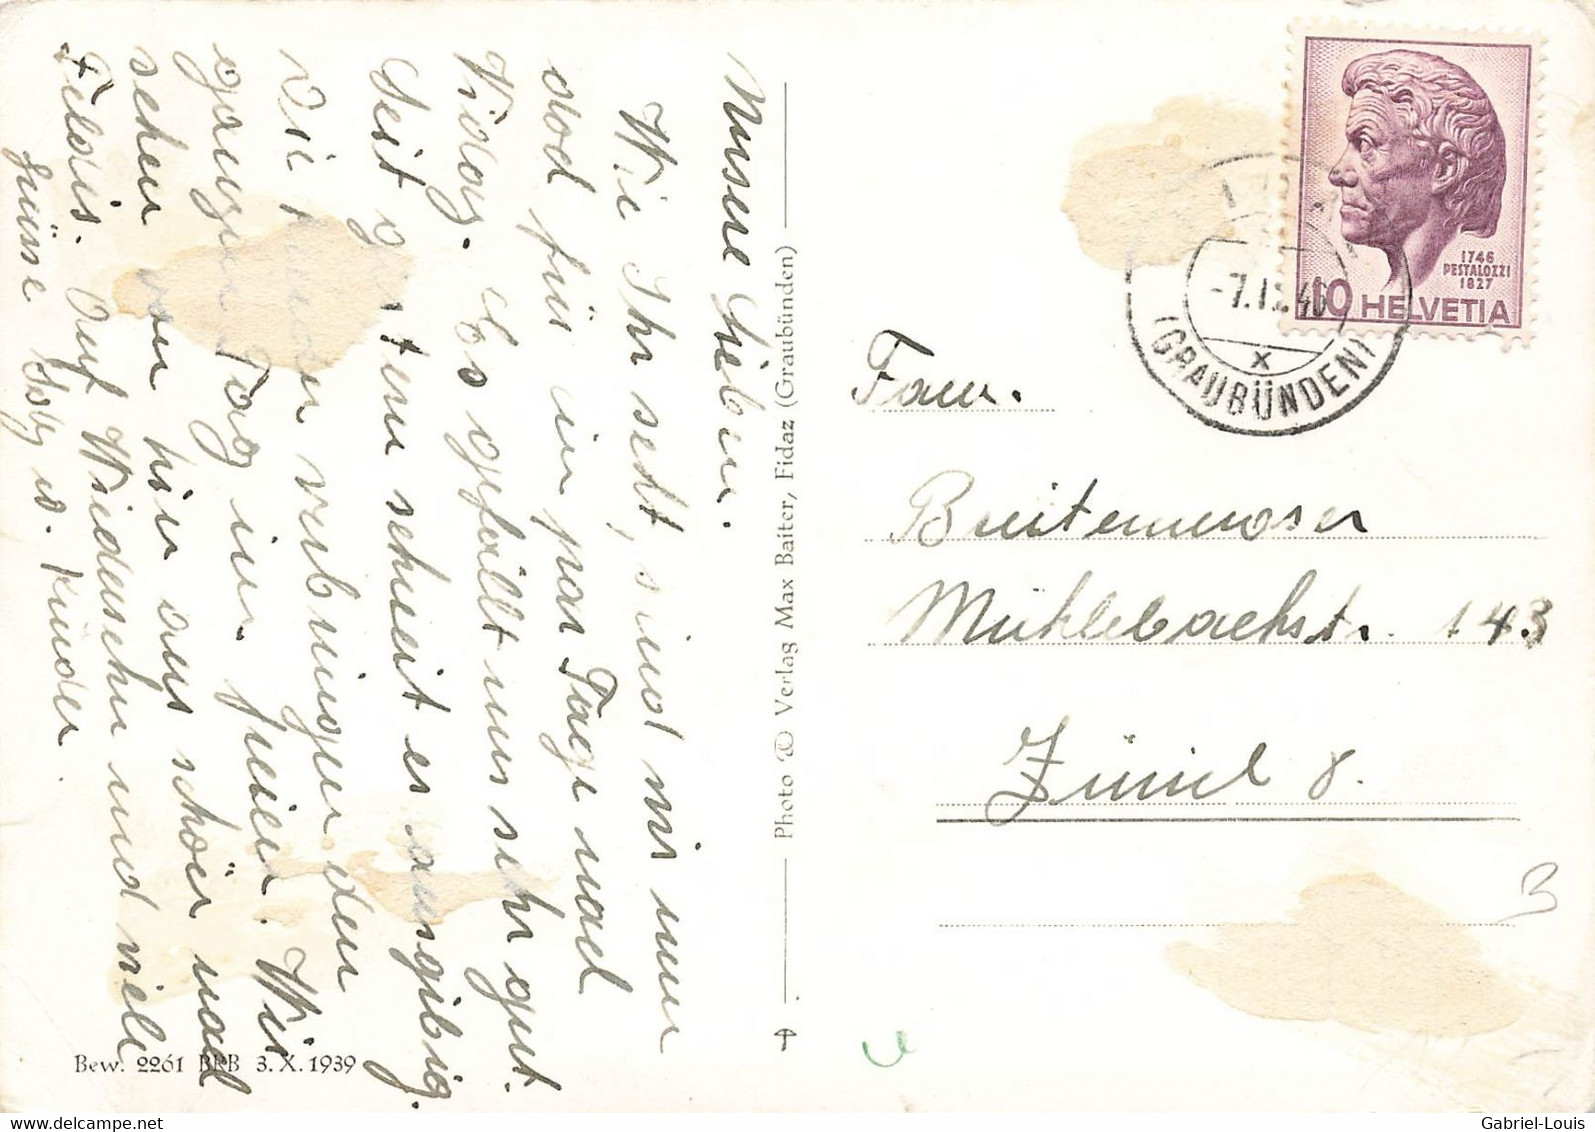 Meine Lieben.
Wie Ihr seht, sind wir nun
doch für ein par Tage nach
Fidaz. Es gefällt uns sehr gut.
Seit gestern schneit es ausgibig.
Die Kinder verbringen den
ganzen Tag im freien. Wir
sehen von hier aus schön nach
Feldis. Auf Wiedersehn und viele
Grüsse u. Kinder.
Bew. 2261 BRB 3. X. 1939
Photo © Verlag Max Baiter, Fidaz (Graubünden)
1746
PESTALOZZI
1827
10 HELVETIA
(GRAUBÜNDEN)
x
Fam.
Breitenmoser
Mühlebachstr. 143
Zürich 8.
B
Gabriel-Louis